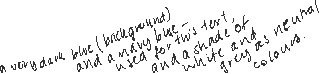 a very dark blue (background)
and a navy blue -
used for this text,
and a shade of
white and
grey as neutral
colours.